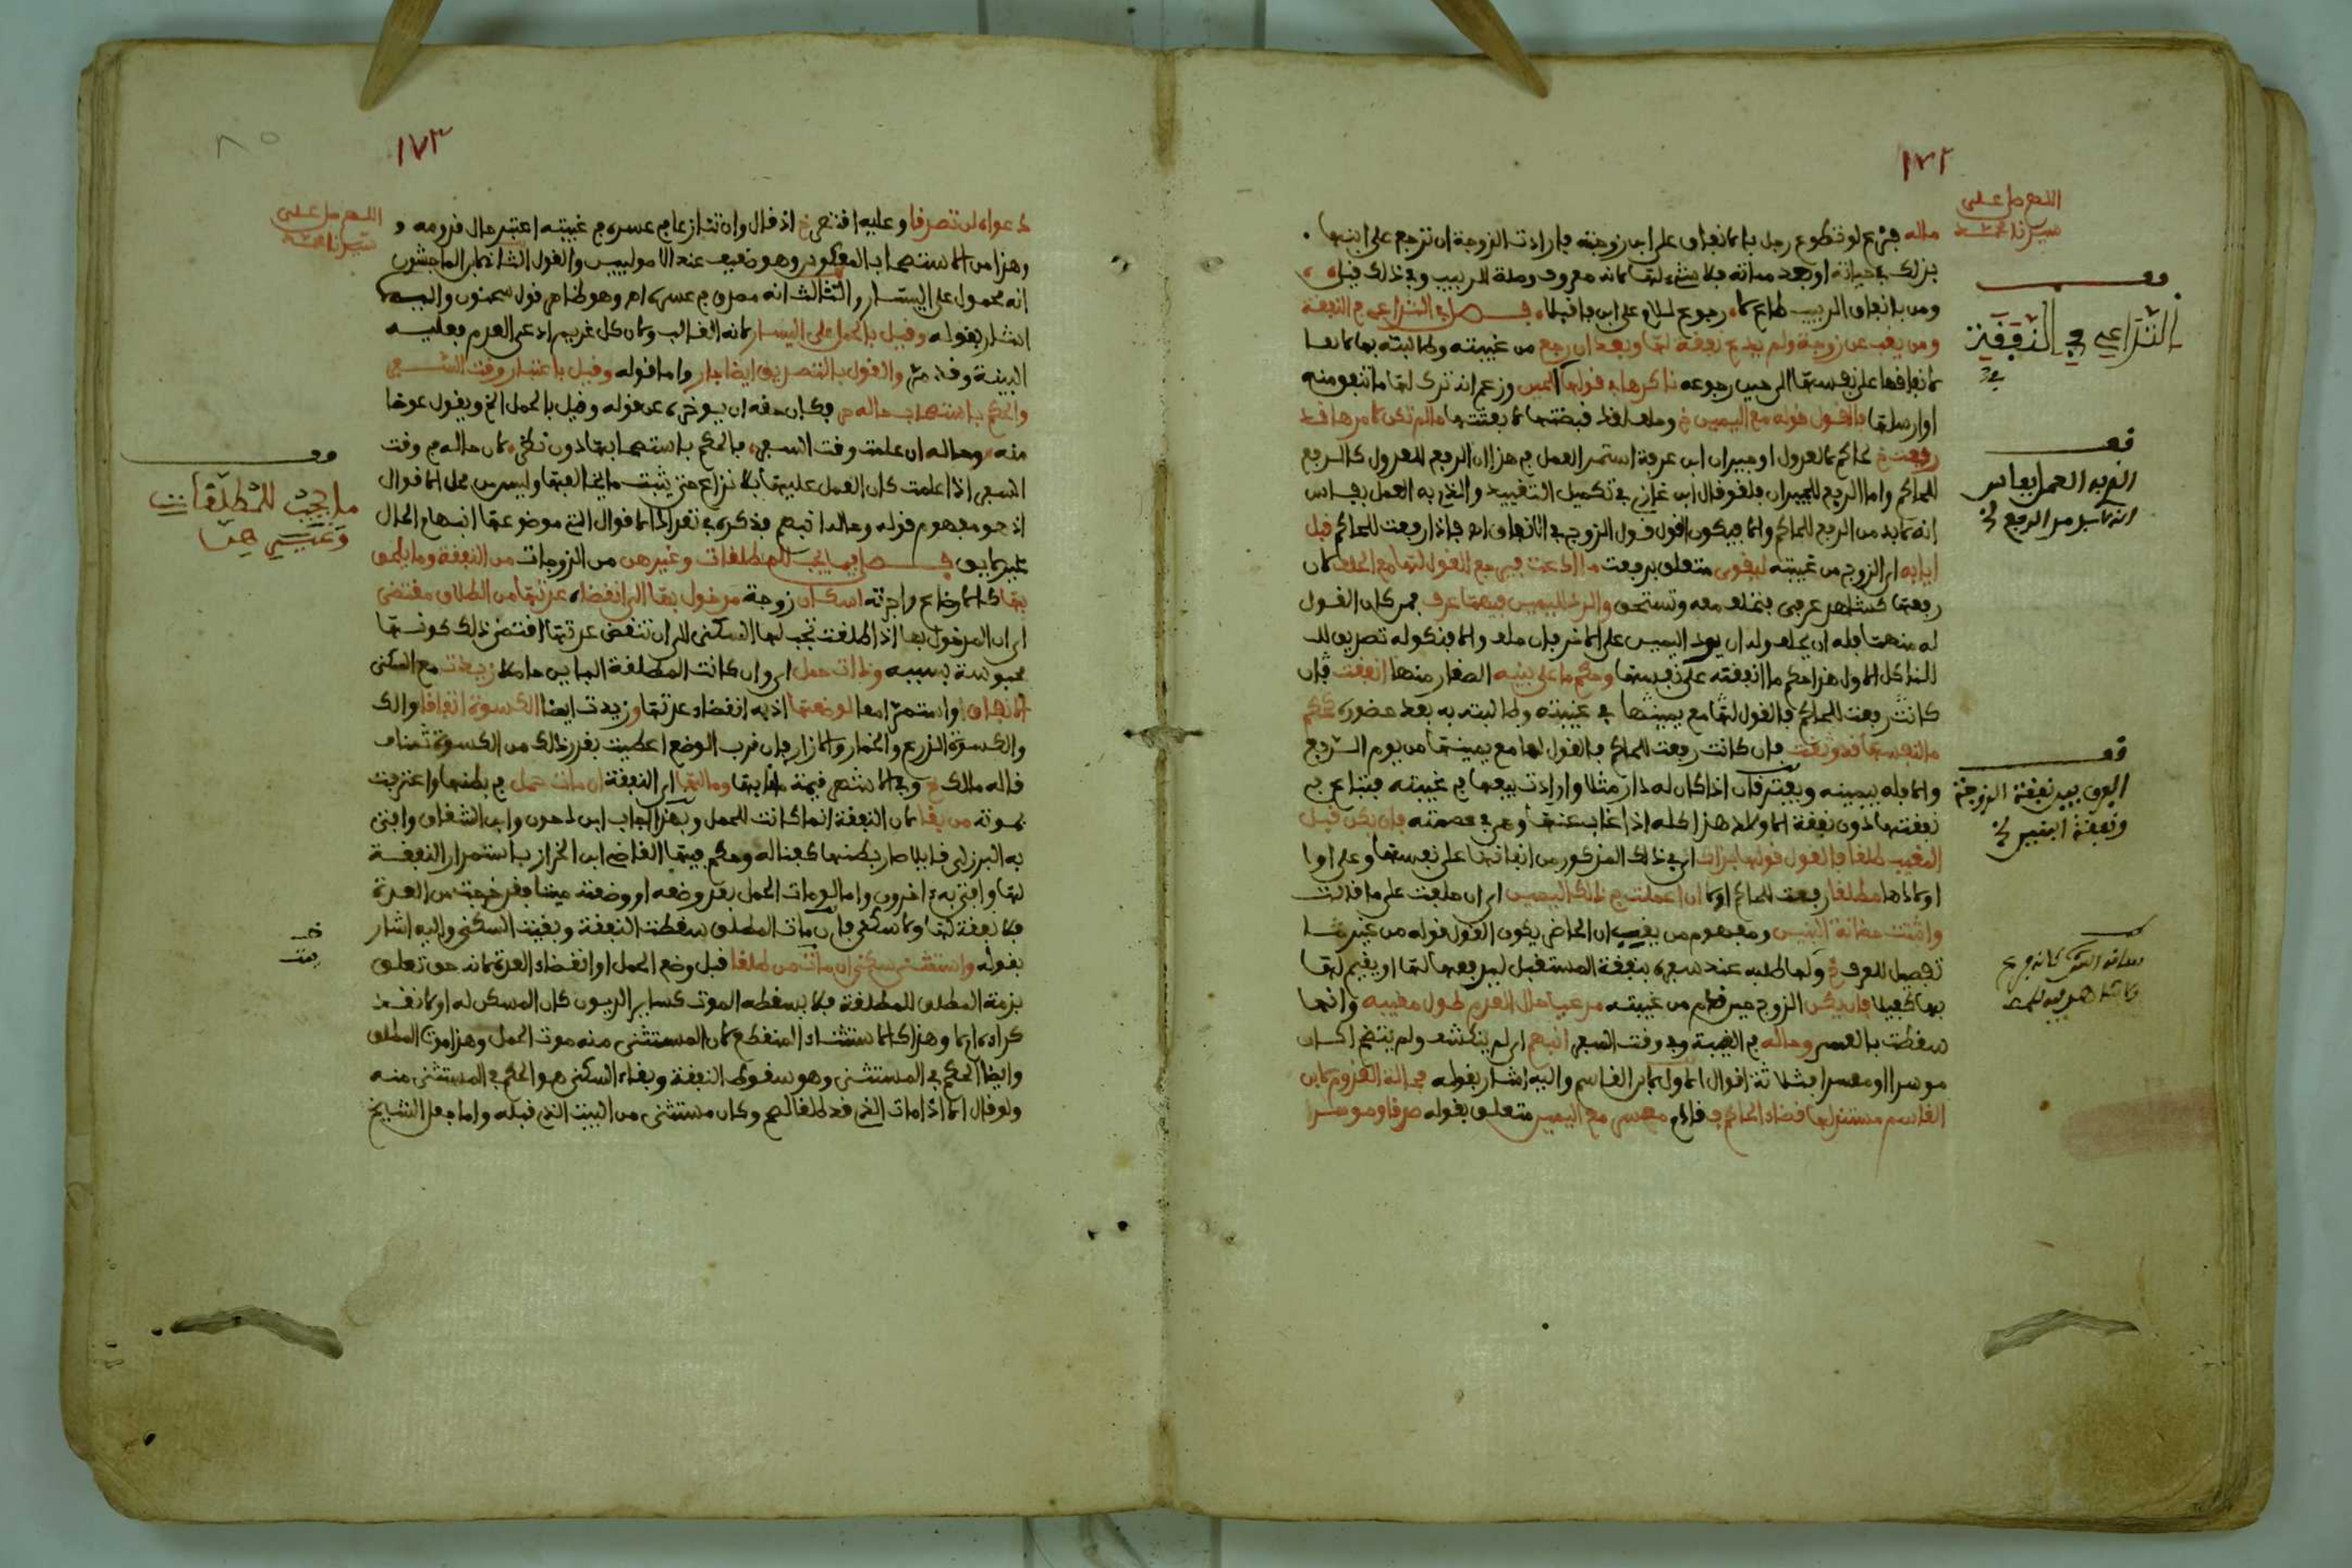 ١٧٢
اللهم صل على
سيدنا محمد
ماله فرع لو تطوع رجل بالانفاق على ابن زوجته فارادت الزوجة ان ترجع على ابنها
بذلك في حياته او بعد مماته فلا شيء لها لانه معروف وصلة للربيب وفي ذلك قيل
ومن بانفاق الربيب طاع لا رجوع له على ابن فاقبلا فصل في التداعي في النفقة
ومن يغب عن زوجة ولم يدع نفقة لها وبعد ان رجع من غيبته وطالبته بها
لانفاقها على نفسها الى حين رجوعه ناكرها في قولها اليمين وزعم انه ترك لها ما تنفق منه
او ارسلها فالقول قوله مع اليمين وحلف لقد قبضتها لا بعثتها ما لم تكن لامرها قد
رفعت لحاكم للعدول او جيران ابن عرفة استمر العمل في هذا ان الرفع للعدول كالرفع
للحاكم واما الرفع للجيران فلغو قال ابن غازي في تكميل التقييد والذي به العمل بفاس
انه لا بد من الرفع للحاكم والا فيكون القول قول الزوج في الانفاق اه فاذا رفعت للحاكم قبل
ايابه اي الزوج من غيبته ليقوى متعلق برفعت ما ادعت فهي مع القول لها مع الحلف لان
رفعها كشاهد عرفي فتحلف معه وتستحق والرد لليمين فيهما عرف فمن كان القول
له منهما فله ان يحلف وله ان يرد اليمين على الاخر فان حلف والا فنكوله تصديق
للناكل الاول هذا حكم ما انفقته على نفسها وحكم ما على بنيه الصغار منها انفقت فان
كانت رفعت للحاكم فالقول لها مع يمينها في غيبته وطالبته به بعد حضوره كحكم
ما لنفسها قد وثقت فان كانت رفعت للحاكم فالقول لها مع يمينها من يوم الرفع
والا فله بيمينه ويفترقان اذا كان له دار مثلا وارادت بيعها في غيبته فتباع في
نفقتها دون نفقة الاولاد هذا كله اذا غاب عنها وهي في عصمته فان يكن قبل
المغيب طلقا فالقول قولها بذاك اي في ذلك المذكور من انفاقها على نفسها وعلى
اولادها مطلقا رفعت للحاكم او لا ان اعملت في ذلك اليمين اي ان حلفت على ما قالت
واثبتت حضانة البنين ومفهوم من يغب ان الحاضر يكون القول قوله من غير
تفصيل للعرف ولها طلبه عند سفره بنفقة المستقبل ليدفعها لها او يقيم لها
بها كفيلا فان يكن الزوج حين قدم من غيبته مدعيا حال العدم طول مغيبه وانها
سقطت بالعسر وحاله في الغيبة وفي وقت السفر انبهم اي لم ينكشف ولم يتضح اكان
موسرا او معسرا فثلاثة اقوال الاول لابن القاسم واليه اشار بقوله فحالة القدوم لابن
القاسم مستند لها قضاء الحاكم فقادم معسر مع اليمين متعلق بقوله صدقا وموسر
فصل
التداعي في النفقة
قف
الذي به العمل بفاس
انه لا بد من الرفع الخ
قف
الفرق بين نفقة الزوجة
ونفقة ابنيه الخ
١٧٣
٨٥
اللهم صل على
سيدنا محمد
دعواه لن تصدقا وعليه اقتصر خ اذ قال وان تنازعا في عسره في غيبته اعتبر حال قدومه
وهذا من الاستصحاب المعكوس وهو ضعيف عند الاصوليين والقول الثاني لابن الماجشون
انه محمول على اليسار والثالث انه مصدق في عسره اه وهو ظاهر قول سحنون واليه
اشار بقوله وقيل بالحمل على اليسار لانه الغالب ولان كل غريم ادعى العدم فعليه
البينة وقد مر والقول بالتصديق ايضا جار واما قوله وقيل باعتبار وقت السفر
والحكم باستصحاب حاله فكان حقه ان يوخره عن قوله وقيل بالحمل الخ ويقول عوضا
منه وحاله ان علمت وقت السفر فالحكم باستصحابها دون نظر لان حاله في وقت
السفر اذا علمت كان العمل عليها بلا نزاع حتى يثبت ما يخالفها وليس من محل الاقوال
اذ هو مفهوم قوله وحاله انبهم فذكره في تعداد الاقوال التي موضوعها انبهام الحال
غير لايق فصل فيما يجب للمطلقات وغيرهن من الزوجات من النفقة وما يلحق
بها كالرضاع واجرته اسكان زوجة مدخول بها الى انقضاء عدتها من الطلاق مقتضى
اي ان المدخول بها اذا طلقت تجب لها السكنى الى ان تنقضي عدتها اقتضى ذلك كونها
محبوسة بسببه وذات حمل اي وان كانت المطلقة البائن حاملا زيدت مع السكنى
الانفاق واستمر لها لوضعها اذ به انقضاء عدتها وزيدت ايضا الكسوة اتفاقا
والكسوة الدرع والخمار والازار فان قرب الوضع اعطيت بقدر ذلك من الكسوة ثمنا
قاله مالك وفي الاشهر قيمة ما نابها ومالها اي النفقة ان مات حمل في بطنها واعترفت
بموته من بقا لان النفقة انما كانت للحمل وبهذا اجاب ابن لحون وابن الشقاق وافتى
به البرزلي قايلا صار بطنها كفنا له وحكم فيها القاضي ابن الخراز باستمرار النفقة
لها وافتى به اخرون واما لو مات الحمل بعد وضعه او وضعته ميتا فقد خرجت من العدة
فلا نفقة لها ولا سكنى فان مات المطلق سقطت النفقة وبقيت السكنى واليه اشار
بقوله واستثن سكنى ان مات من طلقا قبل وضع الحمل او انقضاء العدة لانه حق تعلق
بذمة المطلق للمطلقة فلا يسقطه الموت كساير الديون كان المسكن له او لا نقد
كراه ام لا وهذا كالاستثناء المنقطع لان المستثنى منه موت الحمل وهذا موت المطلق
وايضا الحكم في المستثنى وهو سقوط النفقة وبقاء السكنى هو الحكم في المستثنى منه
ولو قال الا اذا مات الذي قد طلقا الخ وكان مستثنى من البيت الذي قبله واما جعل الشيخ
قف
ما يجب للمطلقات
وغيرهن